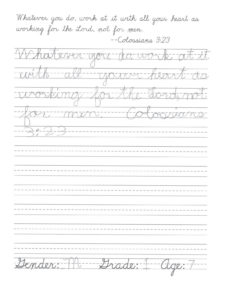 Whatever you do, work at it with all your heart as
working for the Lord, not for men.
--Colossians 3:23
Whatever you do work at it
with all your heart as
working for the Lord not
for men. Colossians
3:23
Gender: M Grade: 1 Age: 7